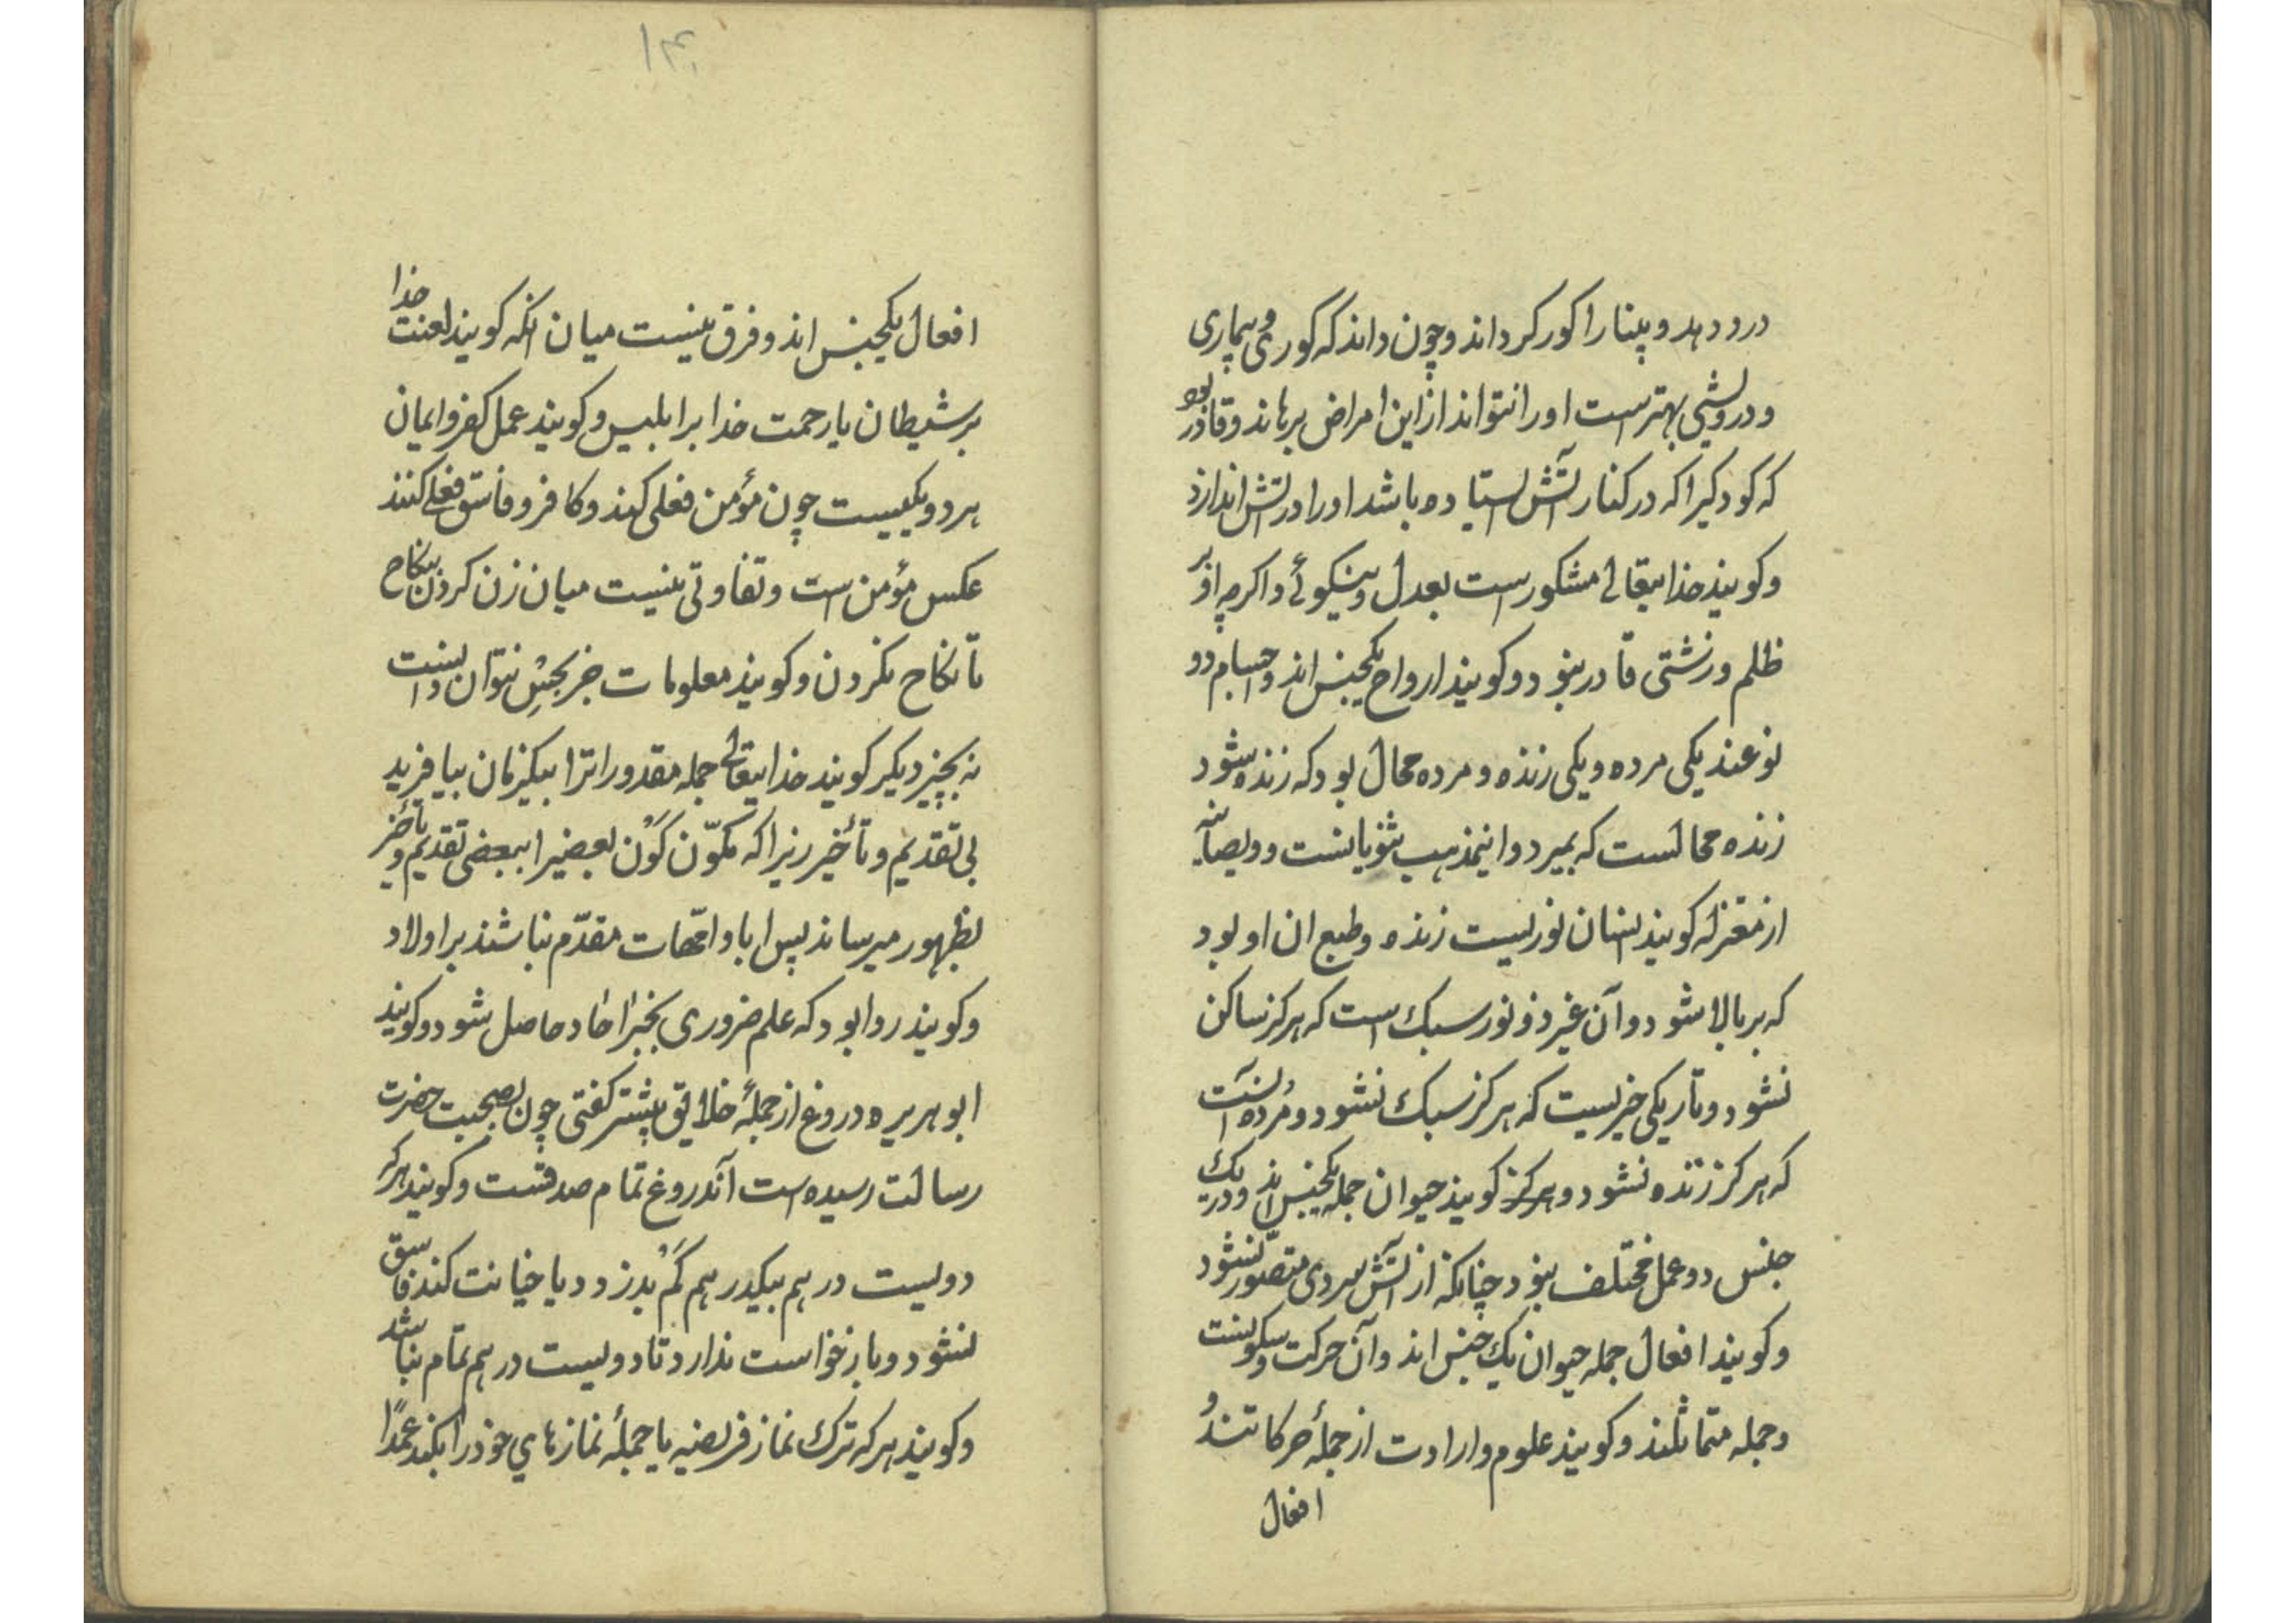 درود دهد و بینا را کور کرداند و چون داند که کوری و بیماری
و درویشی بهترست او را نتواند ازاین امراض برهاند و قادر بود
که کودکیرا که در کنار آتش استیاده باشد او را در آتش اندازد
و کویند خدایتعالی مشکورست بعدل و نیکوئے و اکرچه او بر
ظلم و زشتی قادر بنود و کویند ارواح یکجنس اند و اجسام دو
نوعند یکی مرده و یکی زنده و مرده محال بود که زنده شود
زنده محالست که بمیرد و اینمذهب ثنویانست و دیصانیه
از معتزله کویند انسان نوریست زنده و طبع ان او بود
که بر بالا شود و آن غیر ذو نور سبک است که هرکز ساکن
نشود و تاریکی خریست که هرکز سبک نشود و مُرده آنست
که هرکز زنده نشود و هرکز کویند حیوان جمله یکجنس اند و در یک
جنس دو عمل مختلف بنود چنانکه از آتش سردی متصّور نشود
و کویند افعال جمله حیوان یک جنس اند و آن حرکت و سکونست
و جمله متماثلند و کویند علوم و ارادت از جملهٔ حرکاتند و
افعال
۱۴
افعال یکجنس اند و فرق نیست میان انکه کویند لعنت خدا
بر شیطان یا رحمت خدا بر ابلیس و کویند عمل کفر و ایمان
هر دو یکیست چون مؤمن فعلی کند و کافر و فاسق فعلے کنند
عکس مؤمن است و تفاوتی نیست میان زن کردن بنکاح
تا نکاح نکردن و کویند معلومات جز بجنس نتوان دانست
نه بچیز دیکر کویند خدایتعالی جمله مقدوراترا بیکزمان بیافرید
بی تقدیم و تأخیر زیرا که مکوّن کَوْن بعضیرا ببعضی تقدیم و تأخیر
بظهور میرساند پس ابا و امّهات مقدّم نباشند بر اولاد
و کویند روا بود که علم ضروری بخبر احاد حاصل شود و کویند
ابو هریره دروغ از جملهٔ خلائق بیشتر کفتی چون بصحبت حضرت
رسالت رسیده است آندروغ تمام صدقست و کویند هر که
دویست درهم بیکدرهم کم بدزدد یا خیانت کند فاسق
نشود و بازخواست ندارد تا دویست درهم تمام نباشد
و کویند هر که ترک نماز فریضه یا جملهٔ نمازهای خود را بکند عمدًا